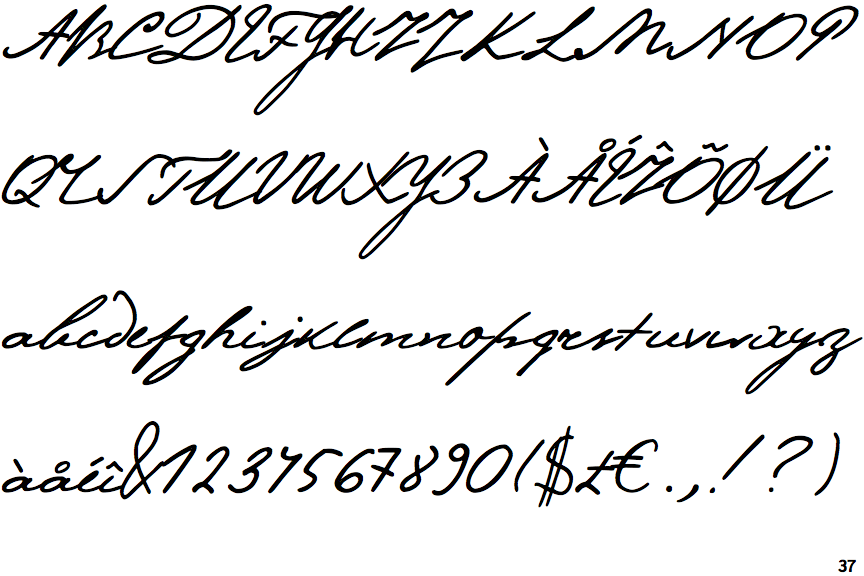 ABCDEFGHIJKLMNOP
QRSTUVWXYZÀÅÉÎÕØÜ
abcdefghijklmnopqrstuvwxyz
àåéî&1234567890($£€.,!?)
37